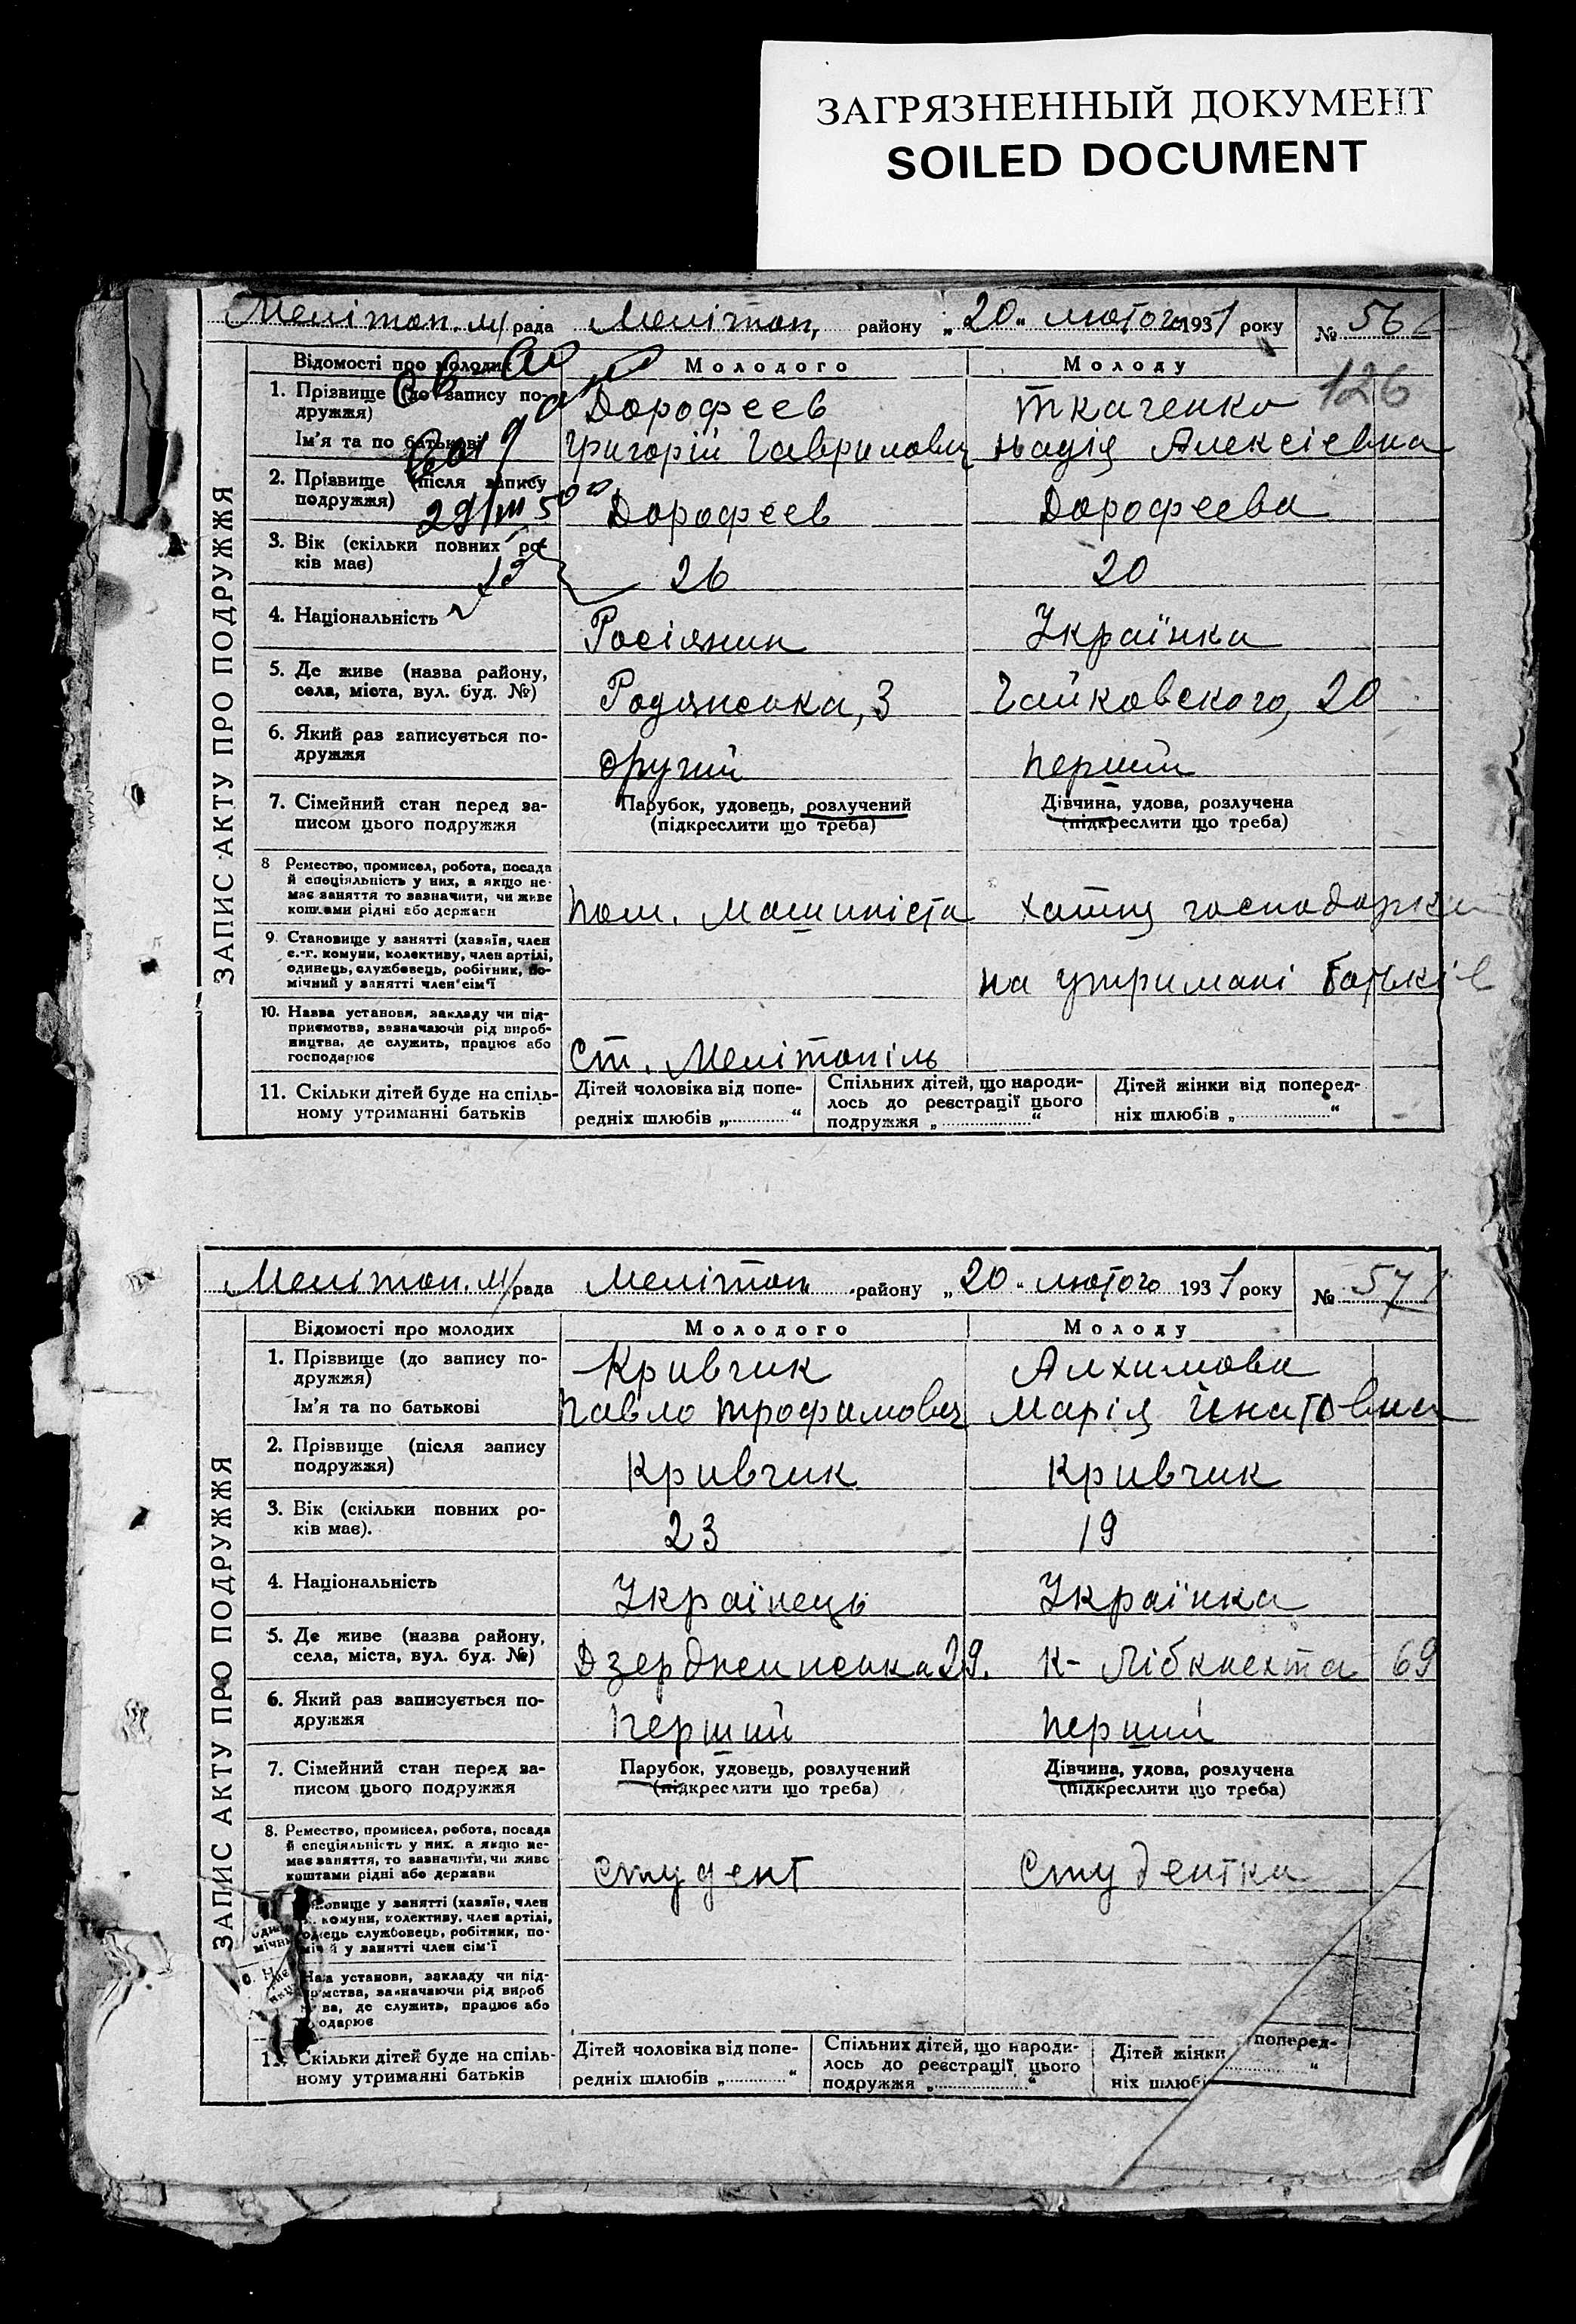 ЗАГРЯЗНЕННЫЙ ДОКУМЕНТ
SOILED DOCUMENT
Мелітоп. м/рада Мелітоп, району „20" лютого 1931 року № 56
126
ЗАПИС АКТУ ПРО ПОДРУЖЖЯ
Відомості про молодих Молодого Молоду
1. Прізвище (до запису по-
дружжя) Дорофеев Ткаченко
Ім'я та по батькові Григорій Гаврилович Надія Алексієвна
2. Прізвище (після запису
подружжя) Дорофеев Дорофеева
29/III 50
3. Вік (скільки повних ро-
ків має) 26 20
4. Національність Росіянин Українка
5. Де живе (назва району,
села, міста, вул. буд. №) Радянська, 3 Чайковського, 20
6. Який раз записується по-
дружжя другий перший
7. Сімейний стан перед за-
писом цього подружжя
Парубок, удовець, розлучений
(підкреслити що треба)
Дівчина, удова, розлучена
(підкреслити що треба)
8 Ремество, промисел, робота, посада
й спеціяльність у них, а якщо не-
має заняття то зазначити, чи живе
коштами рідні або держави
пом. машиніста хатня господарка
9. Становище у занятті (хазяїн, член
с.-г. комуни, колективу, член артілі,
одинець, службовець, робітник, по-
мічний у занятті член сім'ї
на утримані батьків
10. Назва установи, закладу чи під-
приємства, зазначаючи рід вироб-
ництва, де служить, працює або
господарює
Ст. Мелітопіль
11. Скільки дітей буде на спіль-
ному утриманні батьків
Дітей чоловіка від попе-
редніх шлюбів „ "
Спільних дітей, що народи-
лось до реєстрації цього
подружжя „ "
Дітей жінки від поперед-
ніх шлюбів „ "
Мелітоп. м/рада Мелітоп. району „20" лютого 1931 року № 57
ЗАПИС АКТУ ПРО ПОДРУЖЖЯ
Відомості про молодих Молодого Молоду
1. Прізвище (до запису по-
дружжя) Кривчик Алхимова
Ім'я та по батькові Павло Трофимович Марія Ігнатовна
2. Прізвище (після запису
подружжя) Кривчик Кривчик
3. Вік (скільки повних ро-
ків має). 23 19
4. Національність Українець Українка
5. Де живе (назва району,
села, міста, вул. буд. №) Дзердженська 29. К-Лібкнехта 69
6. Який раз записується по-
дружжя Перший перший
7. Сімейний стан перед за-
писом цього подружжя
Парубок, удовець, розлучений
(підкреслити що треба)
Дівчина, удова, розлучена
(підкреслити що треба)
8. Ремество, промисел, робота, посада
й спеціяльність у них, а якщо не-
має заняття, то зазначити, чи живе
коштами рідні або держави
студент Студентка
овище у занятті (хазяїн, член
комуни, колективу, член артілі,
службовець, робітник, по-
у занятті член сім'ї
установи, закладу чи під-
мства, зазначаючи рід вироб
ва, де служить, працює або
одарює
Скільки дітей буде на спіль-
ному утриманні батьків
Дітей чоловіка від попе-
редніх шлюбів „ "
Спільних дітей, що народи-
лось до реєстрації цього
подружжя „ "
Дітей жінки поперед-
ніх шлюбі "